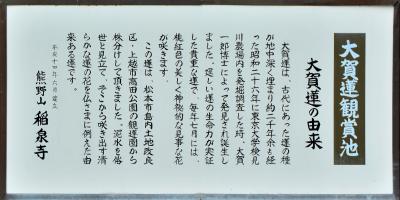 大賀蓮観賞池
大賀蓮の由来
大賀蓮は、古代にあった蓮の種
が地中深く埋まり約二千年余も経
った昭和二十六年に東京大学検見
川農場内を発掘調査した時、大賀
一郎博士によって発見され誕生し
ました。逞しい蓮の生命力が実証
した貴重な蓮で、毎年七月には、
桃紅色の美しく神秘的な見事な花
が咲きます。
この蓮は、松本市島内土地改良
区・上越市高田公園の観蓮園から
株分けして頂きました。泥水を俗
世と見立て、そこから咲き出す清
らかな蓮の花を仏さまに例えた由
来ある蓮です。
平成十四年六月建立
熊野山 稲泉寺